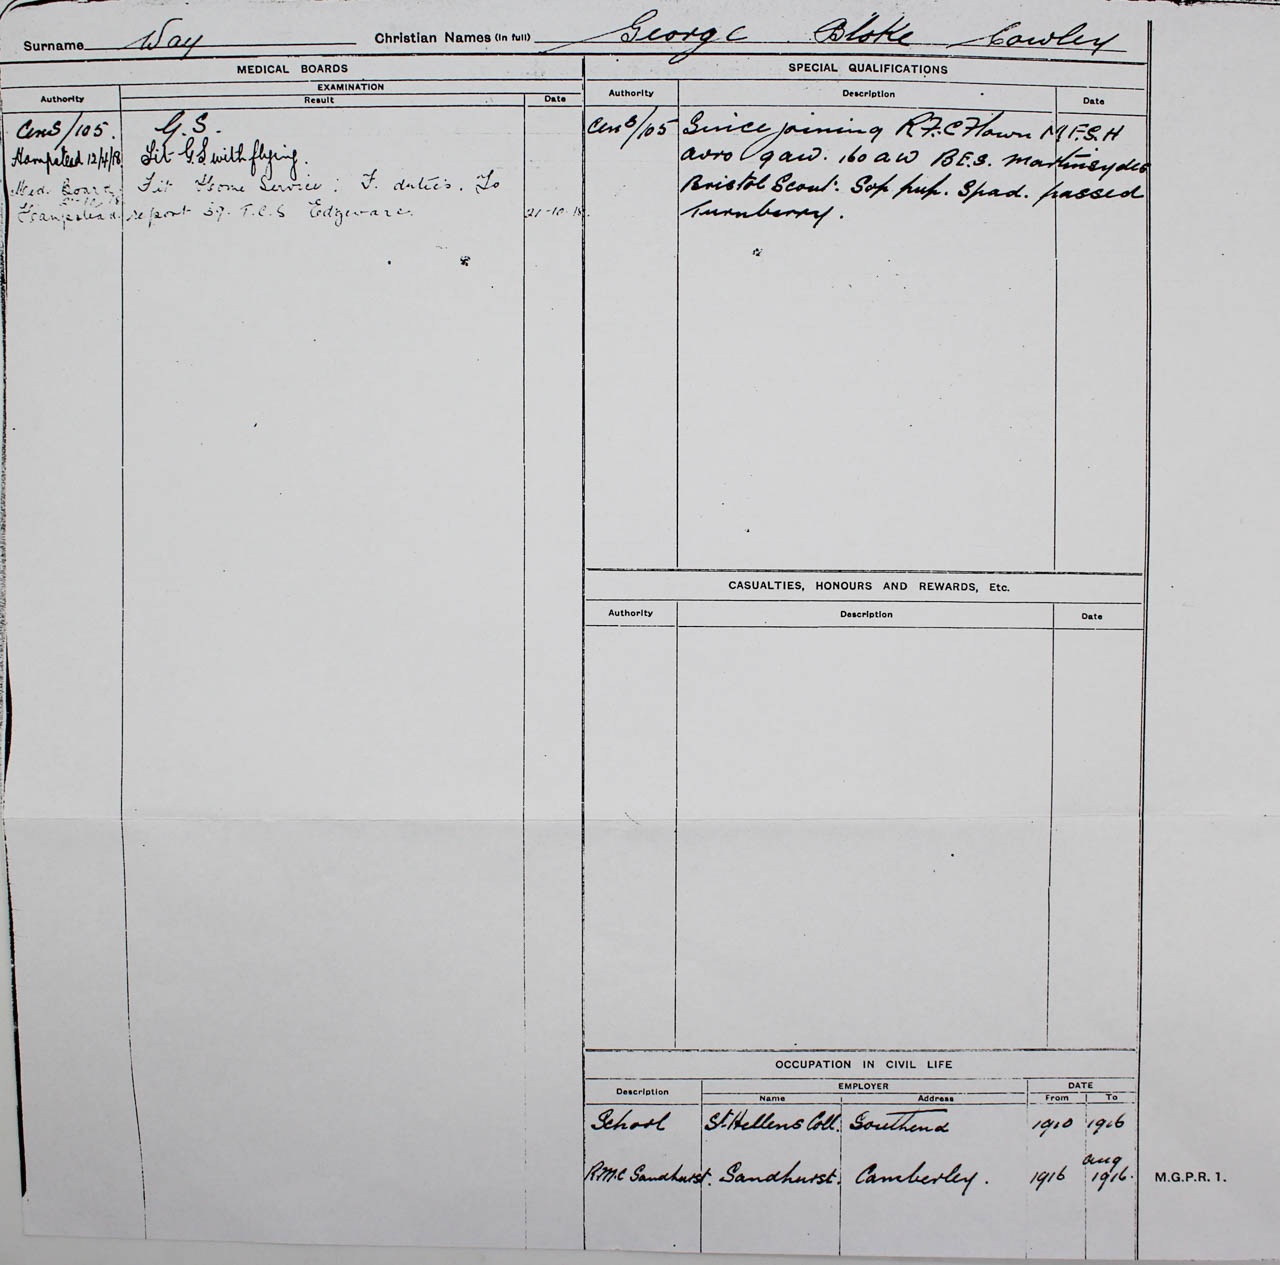 Surname Way Christian Names (in full) George Bloke Cowley
MEDICAL BOARDS
Authority EXAMINATION
Result Date
CenS/105. G.S.
Hampstead 12/4/18 Fit G.S with flying.
Med. Board Fit Home Service: F. duties. To
Hampstead. report T.C.S Edgeware. 21-10-18.
SPECIAL QUALIFICATIONS
Authority Description Date
CenS/105 Since joining R.F.C Flown M.F.S.H
avro gaw. 160 aw B.E.S. martinsydes
Bristol Scout. Sop pup. Spad. passed
Turnberry.
CASUALTIES, HONOURS AND REWARDS, Etc.
Authority Description Date
OCCUPATION IN CIVIL LIFE
Description EMPLOYER DATE
Name Address From To
School St. Hellens Coll. Southend 1910 1916
R.M.C Sandhurst. Sandhurst. Camberley. 1916 aug 1916.
M.G.P.R. 1.